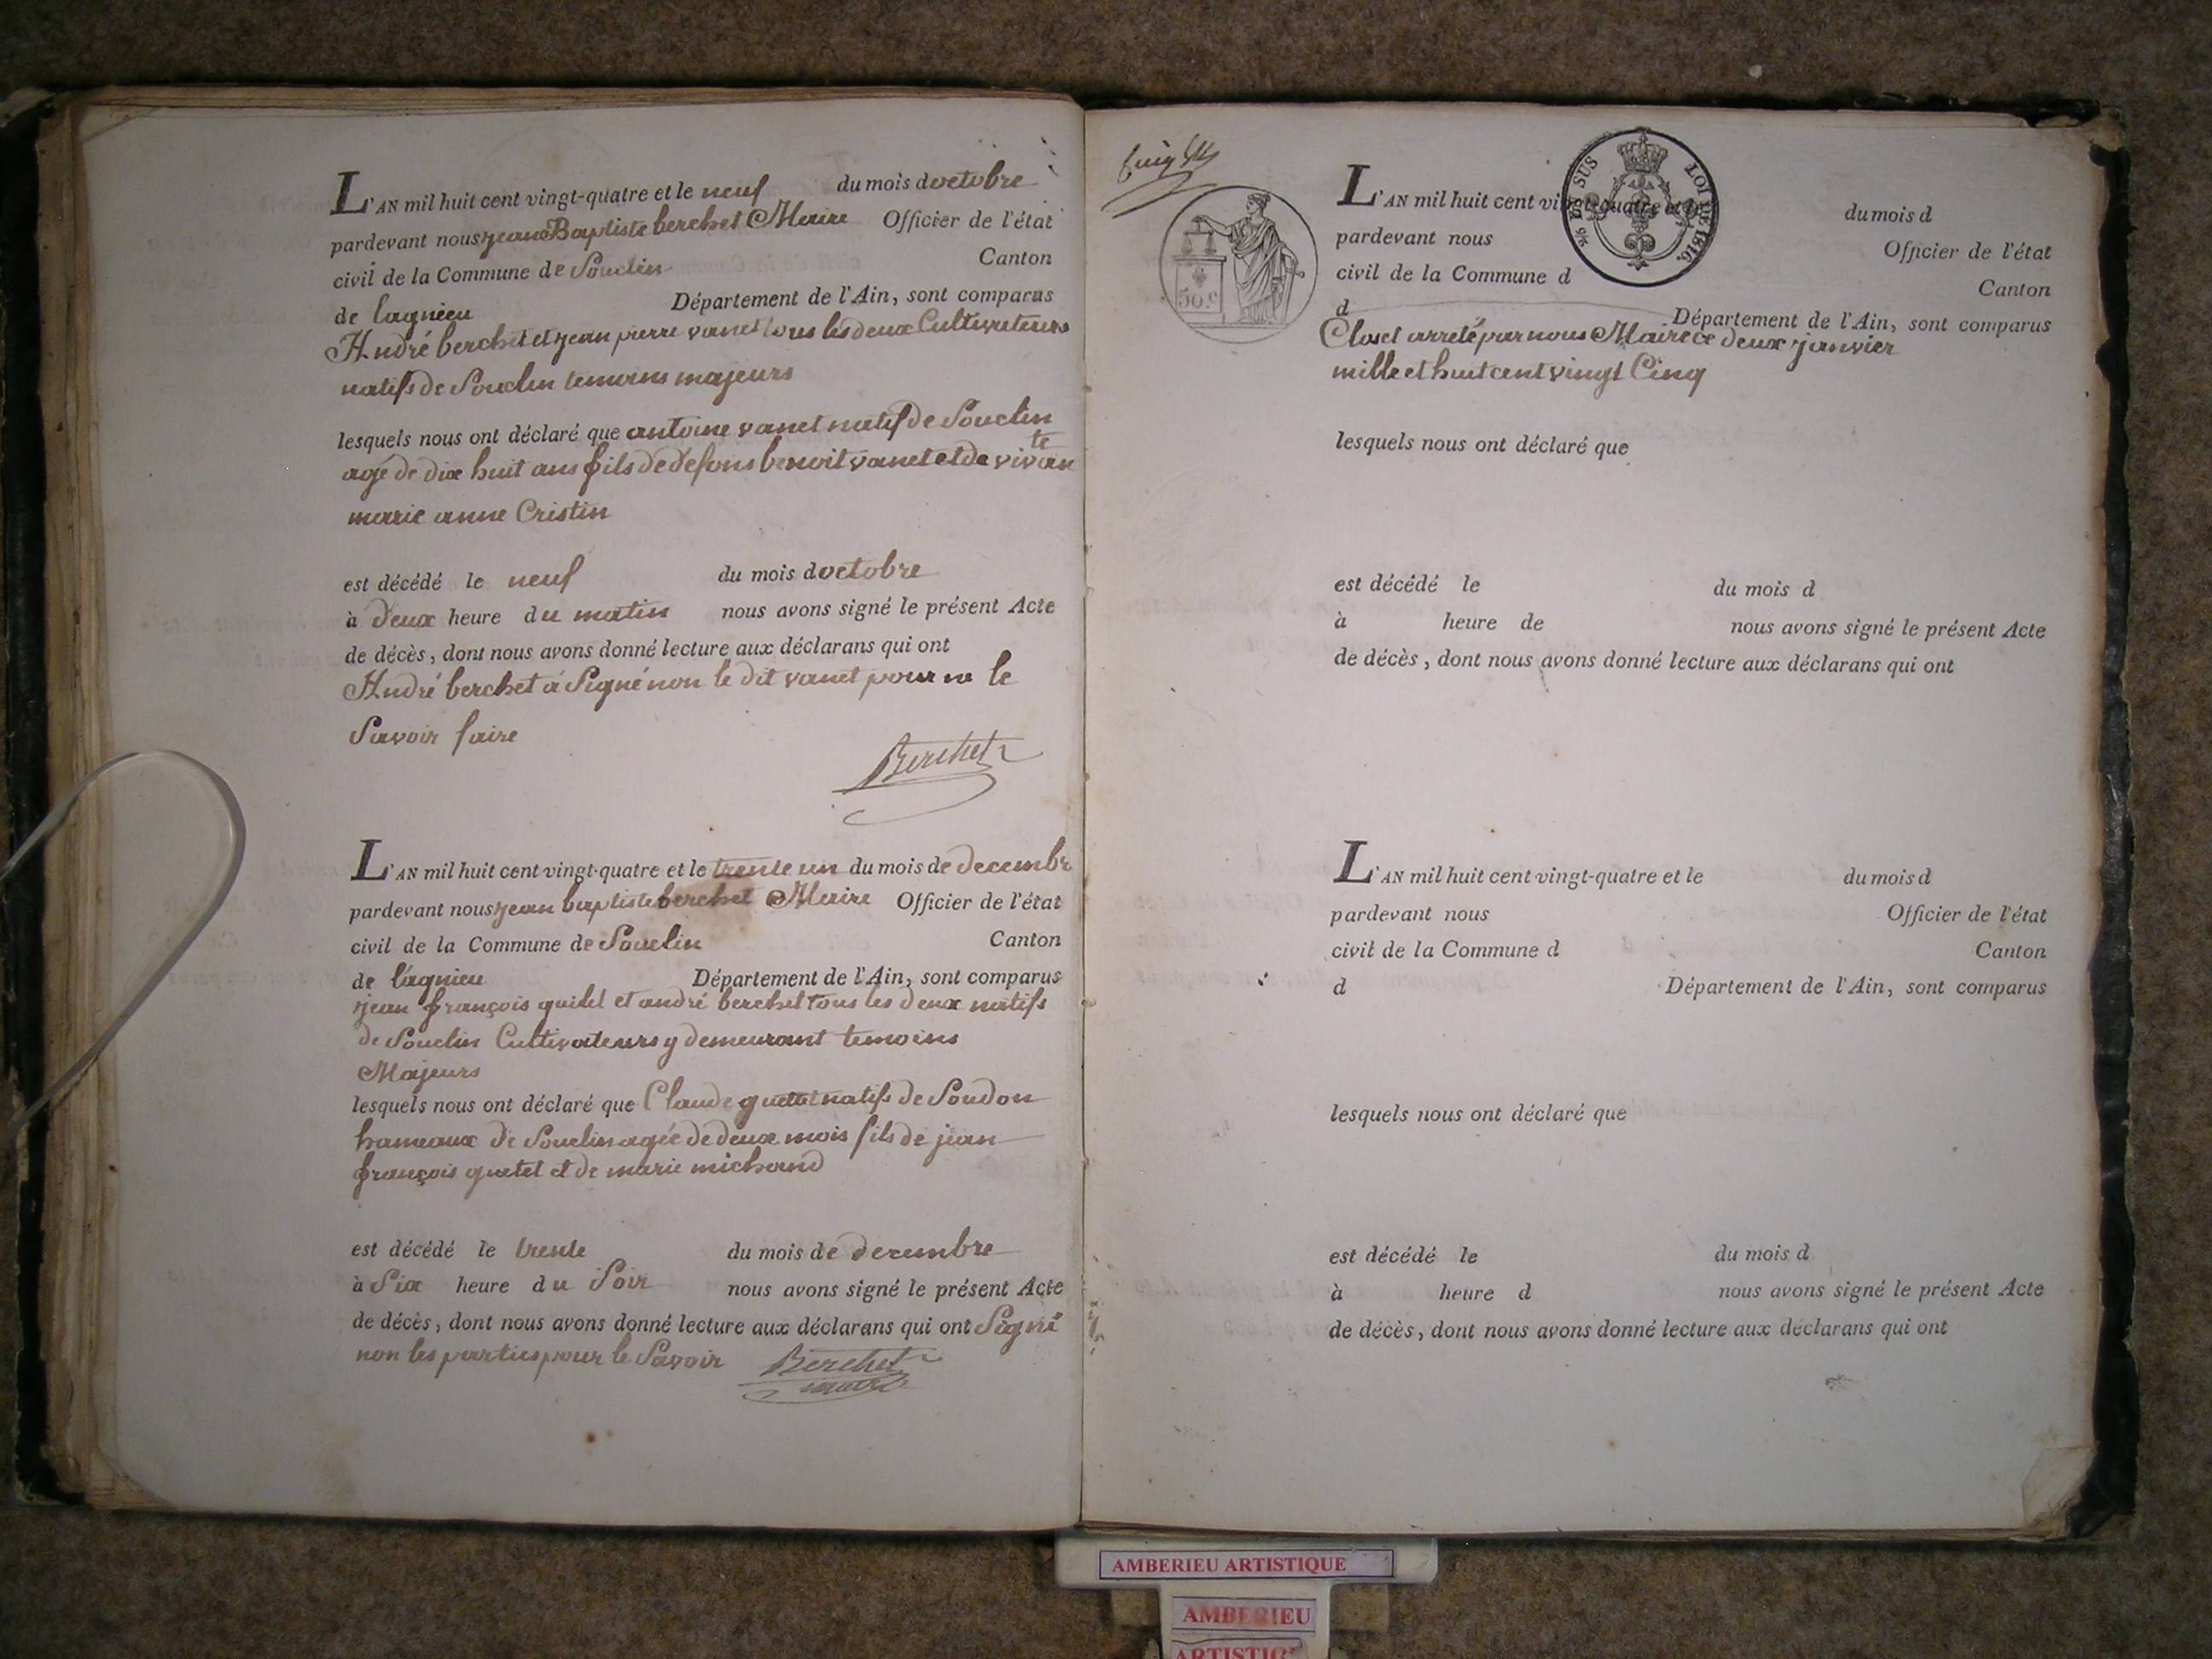 L'AN mil huit cent vingt-quatre et le neuf du mois doctobre
pardevant nous jean Baptiste berchet Maire Officier de l'état
civil de la Commune de Souclin Canton
de lagnieu Département de l'Ain, sont comparus
André berchet et jean pierre vanet tous les deux Cultivateurs
natifs de Souclin temoins majeurs
lesquels nous ont déclaré que antoine vanet natif de Souclin
agé de dix huit ans fils de defons benoit vanet et de vivante
marie anne Cristin
est décédé le neuf du mois doctobre
à deux heure du matin nous avons signé le présent Acte
de décès, dont nous avons donné lecture aux déclarans qui ont
André berchet a Signé non le dit vanet pour ne le
Savoir faire
Berchet
L'AN mil huit cent vingt-quatre et le trente un du mois de decembr
pardevant nous jean baptiste berchet Maire Officier de l'état
civil de la Commune de Souclin Canton
de lagnieu Département de l'Ain, sont comparus
jean françois quitet et andré berchet tous les deux natifs
de Souclin Cultivateurs y demeurant temoins
Majeurs
lesquels nous ont déclaré que Claude natifs de Soudon
hameaux de Souclin agée de deux mois fils de jean
françois quetet et de marie michaud
est décédé le trente du mois de decembre
à Six heure du Soir nous avons signé le présent Acte
de décès, dont nous avons donné lecture aux déclarans qui ont Signé
non les parties pour le Savoir Berchet
maire
50.c
EN SUS
LOI DE 1816.
L'AN mil huit cent vingt-quatre et le du mois d
pardevant nous Officier de l'état
civil de la Commune d Canton
d Département de l'Ain, sont comparus
Clos et arreté par nous Maire ce deux janvier
mille et huit cent vingt Cinq
lesquels nous ont déclaré que
est décédé le du mois d
à heure de nous avons signé le présent Acte
de décès, dont nous avons donné lecture aux déclarans qui ont
L'AN mil huit cent vingt-quatre et le du mois d
pardevant nous Officier de l'état
civil de la Commune d Canton
d Département de l'Ain, sont comparus
lesquels nous ont déclaré que
est décédé le du mois d
à heure d nous avons signé le présent Acte
de décès, dont nous avons donné lecture aux déclarans qui ont
AMBERIEU ARTISTIQUE
AMBERIEU